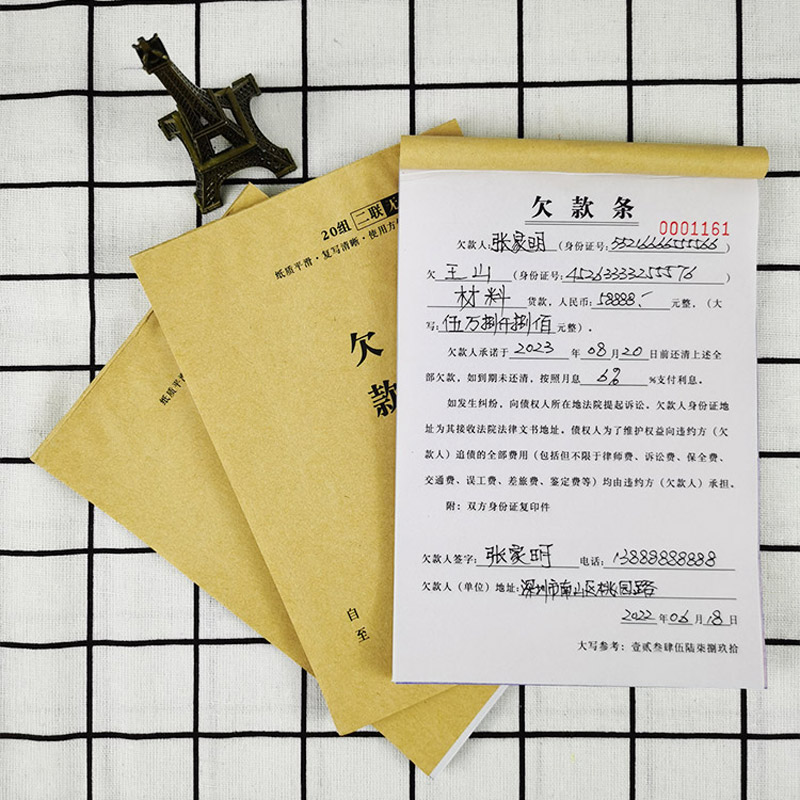 20组 二联
纸质平滑·复写清晰·使用方
纸质平滑
欠
款
自
至
欠款条
0001161
欠款人:张家明(身份证号:55216666555566)
欠 王山 (身份证号:45263333255576)
材料 货款,人民币:58888.- 元整,(大
写:伍万捌仟捌佰元整)。
欠款人承诺于 2023 年 08 月 20 日前还清上述全
部欠款,如到期未还清,按照月息 6% %支付利息。
如发生纠纷,向债权人所在地法院提起诉讼。欠款人身份证地
址为其接收法院法律文书地址。债权人为了维护权益向违约方(欠
款人)追债的全部费用(包括但不限于律师费、诉讼费、保全费、
交通费、误工费、差旅费、鉴定费等)均由违约方(欠款人)承担。
附:双方身份证复印件
欠款人签字:张家明 电话:13888888888
欠款人(单位)地址:深圳市南山区桃园路
2022 年 06 月 18 日
大写参考:壹贰叁肆伍陆柒捌玖拾